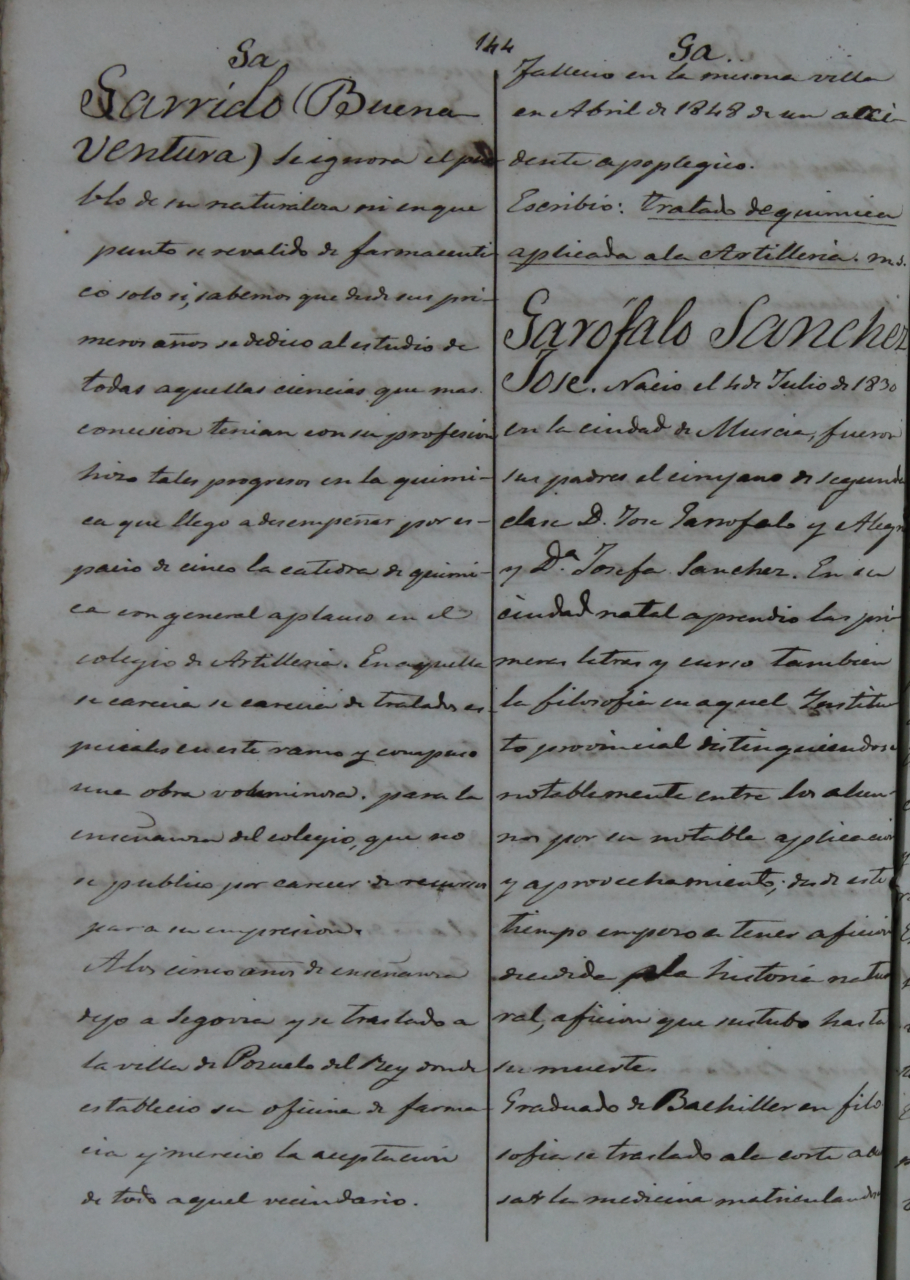 144
Ga
Garrido (Buena-
Ventura) Se ignora el pue-
blo de su naturaleza ni en que
punto se revalido de farmaceuti-
co solo si, sabemos que desde sus pri-
meros años se dedico al estudio de
todas aquellas ciencias que mas
conecsion tenian con su profesion
hizo tales progresos en la quimi-
ca que llego a desempeñar por es-
pacio de cinco la catedra de quimi-
ca con general aplauso en el
colegio de Artilleria. En aquella
se carecia se carecia de tratados es-
peciales en este ramo y compuso
una obra voluminosa. para la
enseñanza del colegio, que no
se publico por carecer de recursos
para su impresion.
A los cinco años de enseñanza
dejo a Segovia y se traslado a
la villa de Pozuelo del Rey donde
establecio su oficina de farma-
cia y merecio la aceptacion
de todo aquel vecindario.
Ga
Fallecio en la misma villa
en Abril de 1848 de un acci-
dente apoplegico.
Escribio: tratado de quimica
aplicada a la Artilleria. ms.
Garófalo Sanchez
Jose. Nacio el 4 de Julio de 1830
en la ciudad de Murcia, fueron
sus padres el cirujano de segunda
clase D. Jose Garrofalo y Alegr
y Dª Josefa Sanchez. En su
ciudad natal aprendio las pri-
meras letras y curso tambien
la filosofia en aquel Institu-
to provincial distinguiendose
notablemente entre los alum-
nos por su notable aplicacion
y aprovechamiento; desde este
tiempo empezo a tener aficion
decidida a la historia natu
ral, aficion que sustubo hasta
su muerte.
Graduado de Bachiller en filo
sofia se traslado a la corte a cur
sar la medicina matriculandose